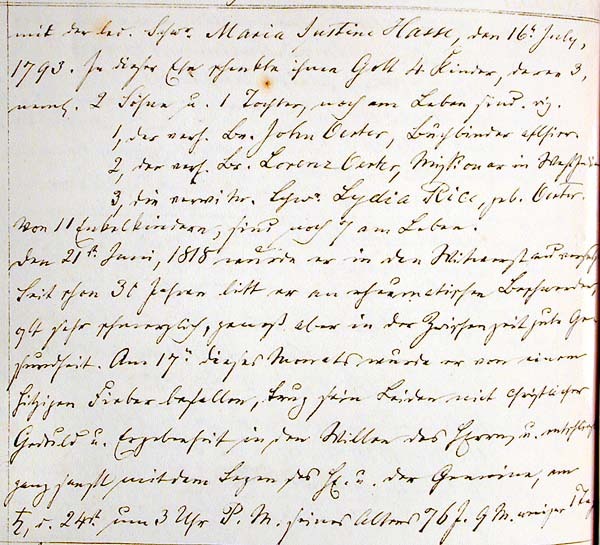 mit der led. Schw. Maria Justina Hasse, den 16t July,
1793. In dieser Ehe schenkte ihnen Gott 4 Kinder, deren 3,
neml. 2 Söhne u. 1 Tochter, noch am Leben sind. viz.
1, der verh. Br. John Oerter, Buchbinder allhier.
2, der verh. Br. Lorenz Oerter, Missionar in Westindien
3, die verwitw. Schwr. Lydia Rice, geb. Oerter.
Von 11 Enkelkindern, sind noch 7 am Leben.
Den 21t Juni, 1818 wurde er in den Witwerstand versetzt
Seit schon 30 Jahren litt er an rheumatischen Beschwerden,
oft sehr schmerzlich, genoß aber in der Zwischenzeit gute Ge-
sundheit. Am 17t dieses Monats wurde er von einem
hitzigen Fieber befallen, trug sein Leiden mit christlicher
Geduld u. Ergebenheit in den Willen des Herrn, u. entschlief
ganz sanft mit dem Segen des Hd. u. der Gemeine, am
♄, d. 24t um 3 Uhr P. M. seines Alters 76 J. 9 M. weniger 1 Tag